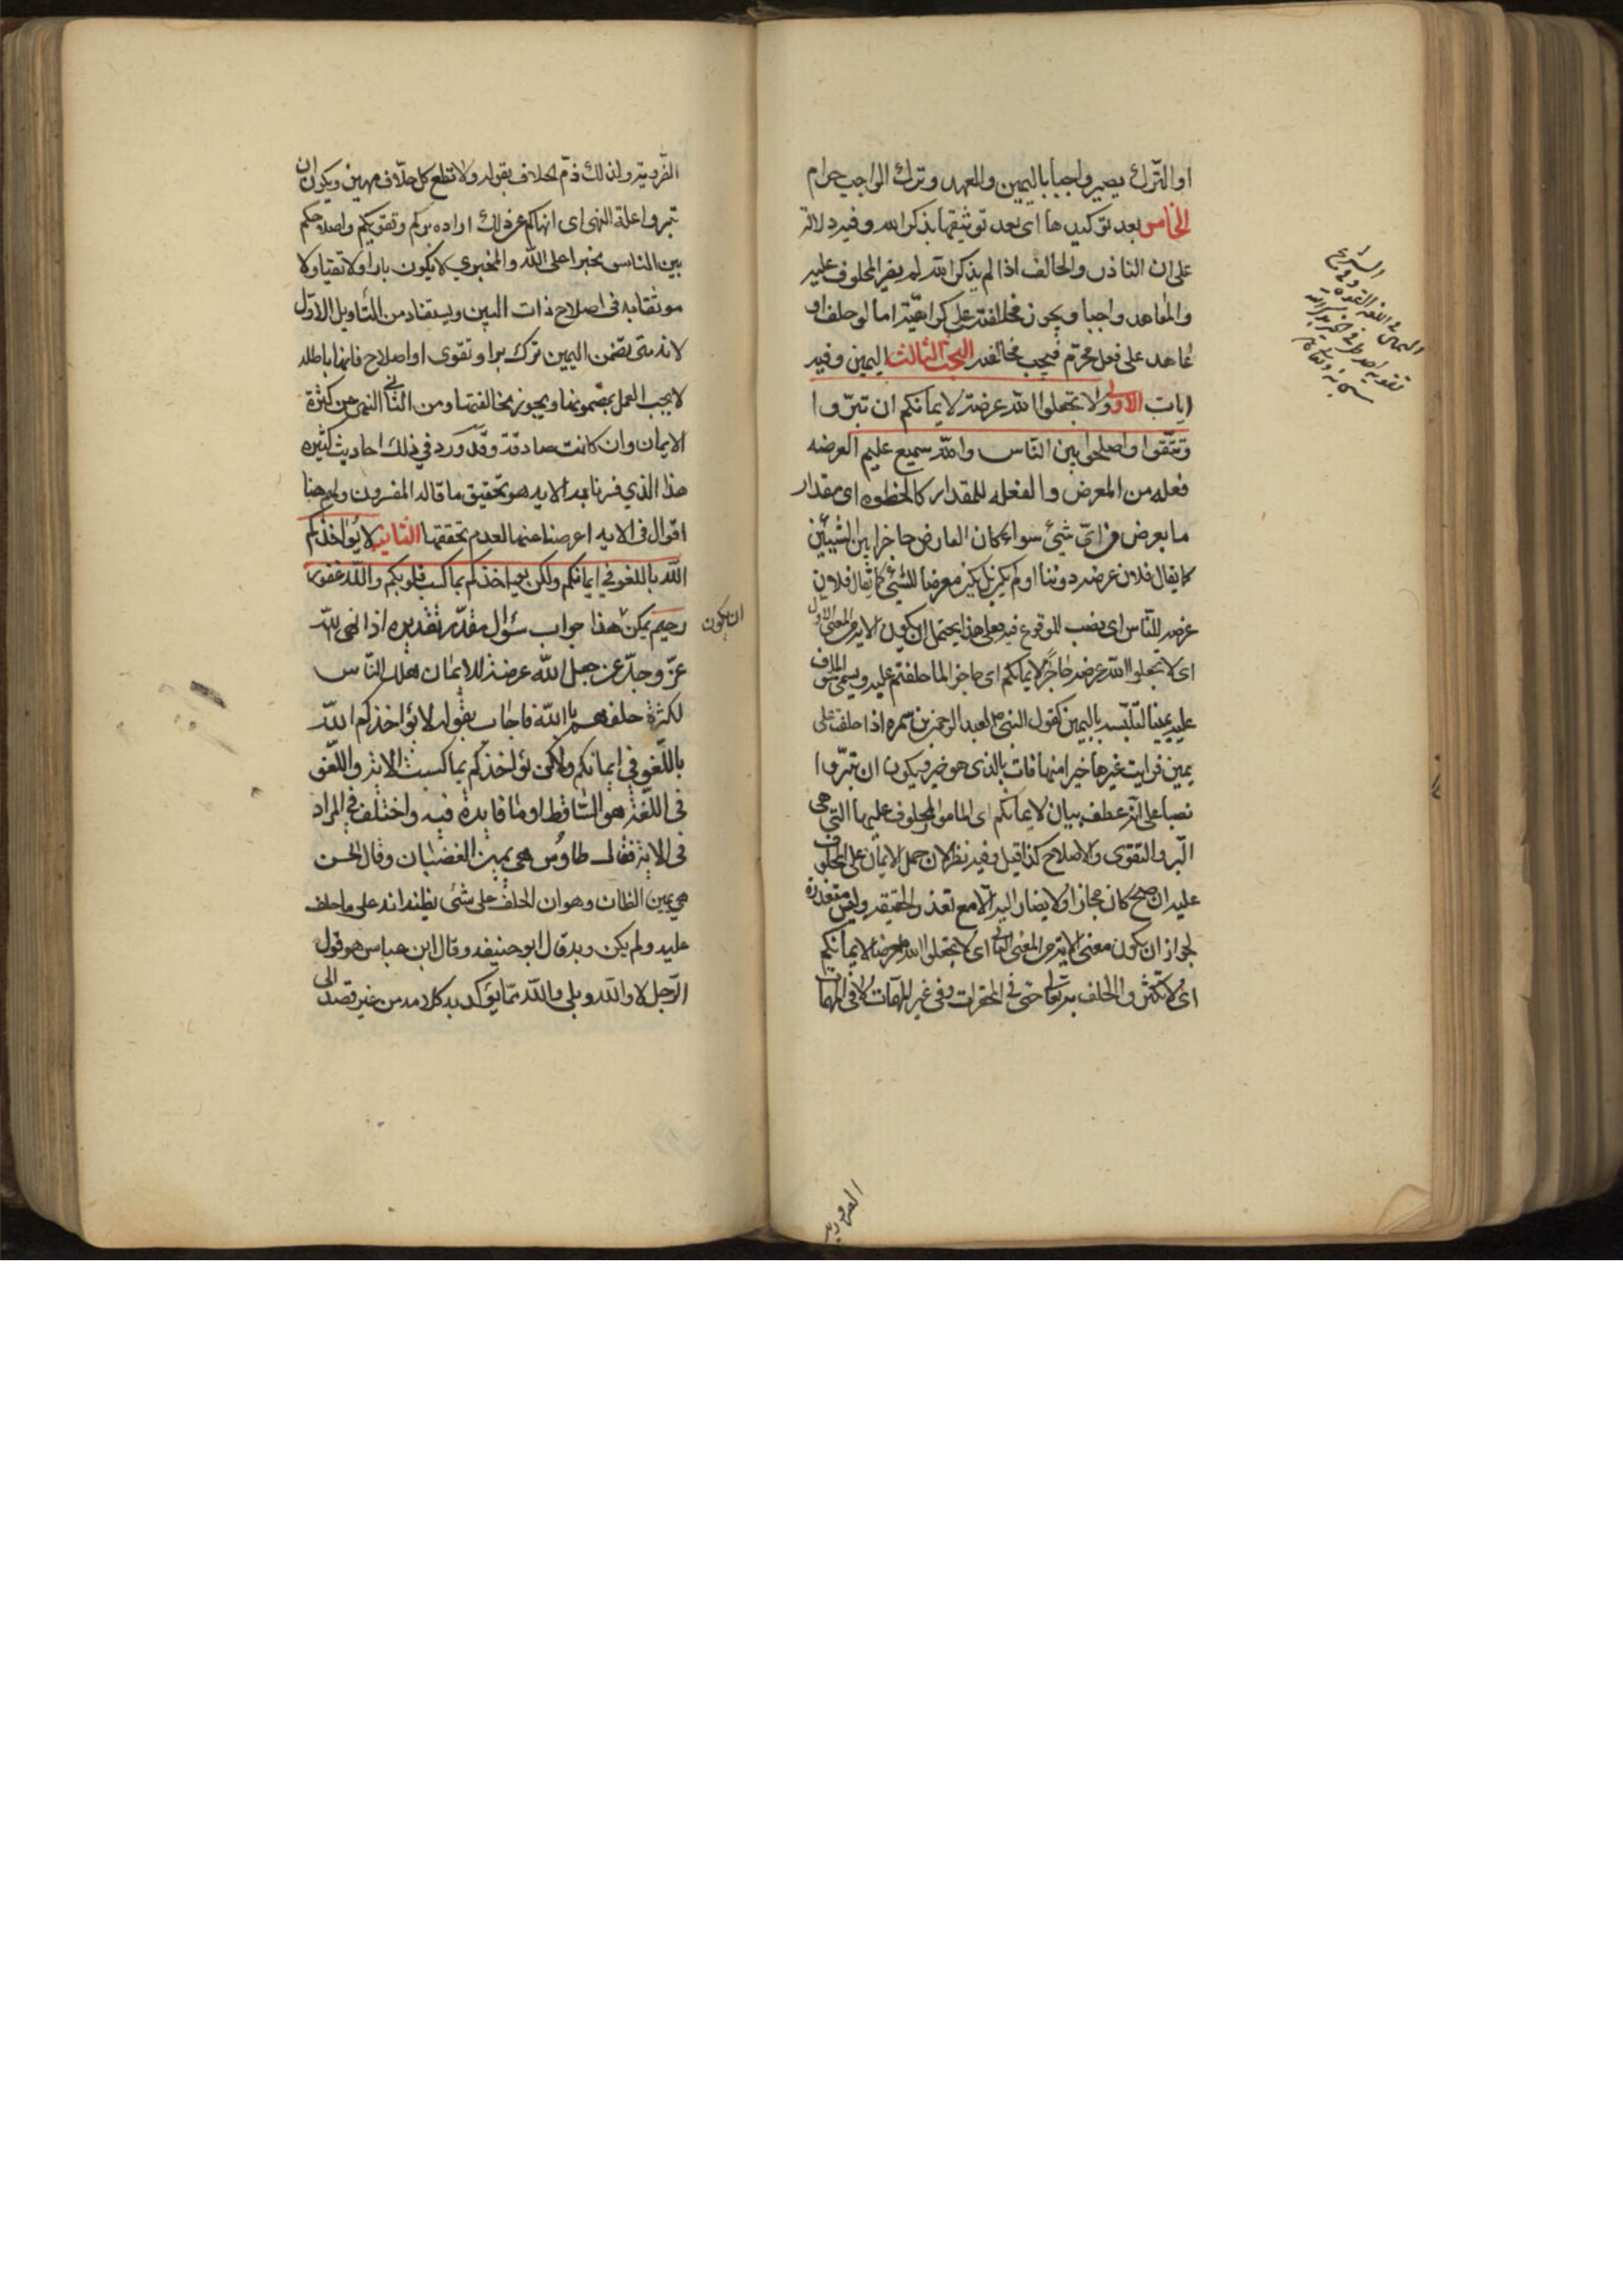 او الترك يصير واجبا باليمين والعهد وترك الواجب حرام
الخامس بعد توكيدها اى بعد توثيقها بذكر الله وفيه دلالة
على ان الناذر والحالف اذا لم يذكر الله لم يصر المحلوف عليه
والمعاهد واجبا ويجوز مخالفته على كراهية اما لو حلف او
عاهد على فعل محرّم فيجب مخالفته البحث الثالث اليمين وفيه
ايات الاولى ولا تجعلوا الله عرضة لايمانكم ان تبرّوا
وتتّقوا وتصلحوا بين النّاس والله سميع عليم العرضه
فعله من المعرض والفعله للمقدار كالخطوه اى مقدار
ما يعرض فى اىّ شيئ سواء كان العارض حاجزا بين الشيئين
كما يقال فلان عرضه دوننا او لم يكن بل يكن معرضا للشيئ كما يقال فلان
عرضه للنّاس اى نصب للوقوع فيه فعلى هذا يحتمل ان يكون الاية من المعنى الاول
اى لا تجعلوا الله عرضه حاجزا لايمانكم اى حاجزا لما حلفتم عليه ويسمى المحلوف
عليه يمينا لتلبّسه باليمين كقول النبى لعبد الرحمن بن سمره اذا حلفت على
يمين فرايت غيرها خيرا منها فات بالذى هو خير ويكون ان تبرّوا
نصبا على انه عطف بيان لايمانكم اى للامور المحلوف عليها التى هى
البّر والتقوى والاصلاح كذا قيل وفيه نظر لان حمل الايمان على المحلوف
عليه ان صح كان مجازا ولا يصار اليه الّا مع تعذر الحقيقه وليس متعذرة
لجواز ان يكون معنى الاية من المعنى الثانى اى لا تجعلوا الله معرضا لايمانكم
اى لا تكثروا الحلف به تعالى حتى فى المحقرات وفى غير المهمّات لا فى المهمات
الضرورية
الضّروريّة ولذلك ذمّ الحلاف بقوله ولا تطع كل حلّاف مهين ويكون ان
تبروا علة النهى اى انهاكم عن ذلك اراده بركم وتقويكم واصلاحكم
بين الناس
موثقا به فى اصلاح ذات البين ويستفاد من التأويل الاوّل
لانه متى تضمن اليمين ترك برا وتقوى او اصلاح فانها باطله
لا يجب العمل بمضمونها ويجوز مخالفتها ومن الثانى النهى عن كثرة
الايمان وان كانت صادقة وقد ورد فى ذلك احاديث كثيره
هذا الذي فسرنا به الايه هو تحقيق ما قاله المفسرون ولهم هنا
اقوال فى الايه اعرضنا عنها لعدم تحققها الثانية لا يؤاخذكم
الله باللغو في ايمانكم ولكن يؤاخذكم بما كسبت قلوبكم والله غفور
رحيم يمكن ان يكون هذا جواب سؤال مقدّر تقديره اذا نهى الله
عزّ وجلّ عن جعل الله عرضة للايمان هلك النّاس
لكثرة حلفهم بالله فاجاب بقوله لا يؤاخذكم الله
باللّغو في ايمانكم ولكن يؤاخذكم بما كسبت الاية واللّغو
فى اللّغة هو السّاقط وما فايدة فيه واختلف فى المراد
فى الاية فقال طاوس هى يمين الغضبان وقال الحسن
هي يمين الظان وهو ان الحلف على شئ يظنه انه على ما حلف
عليه ولم يكن وبه قال ابو حنيفه وقال ابن عباس هو قول
الرّجل لا والله وبلى والله ممّا يؤكد به كلامه من غير قصد الى